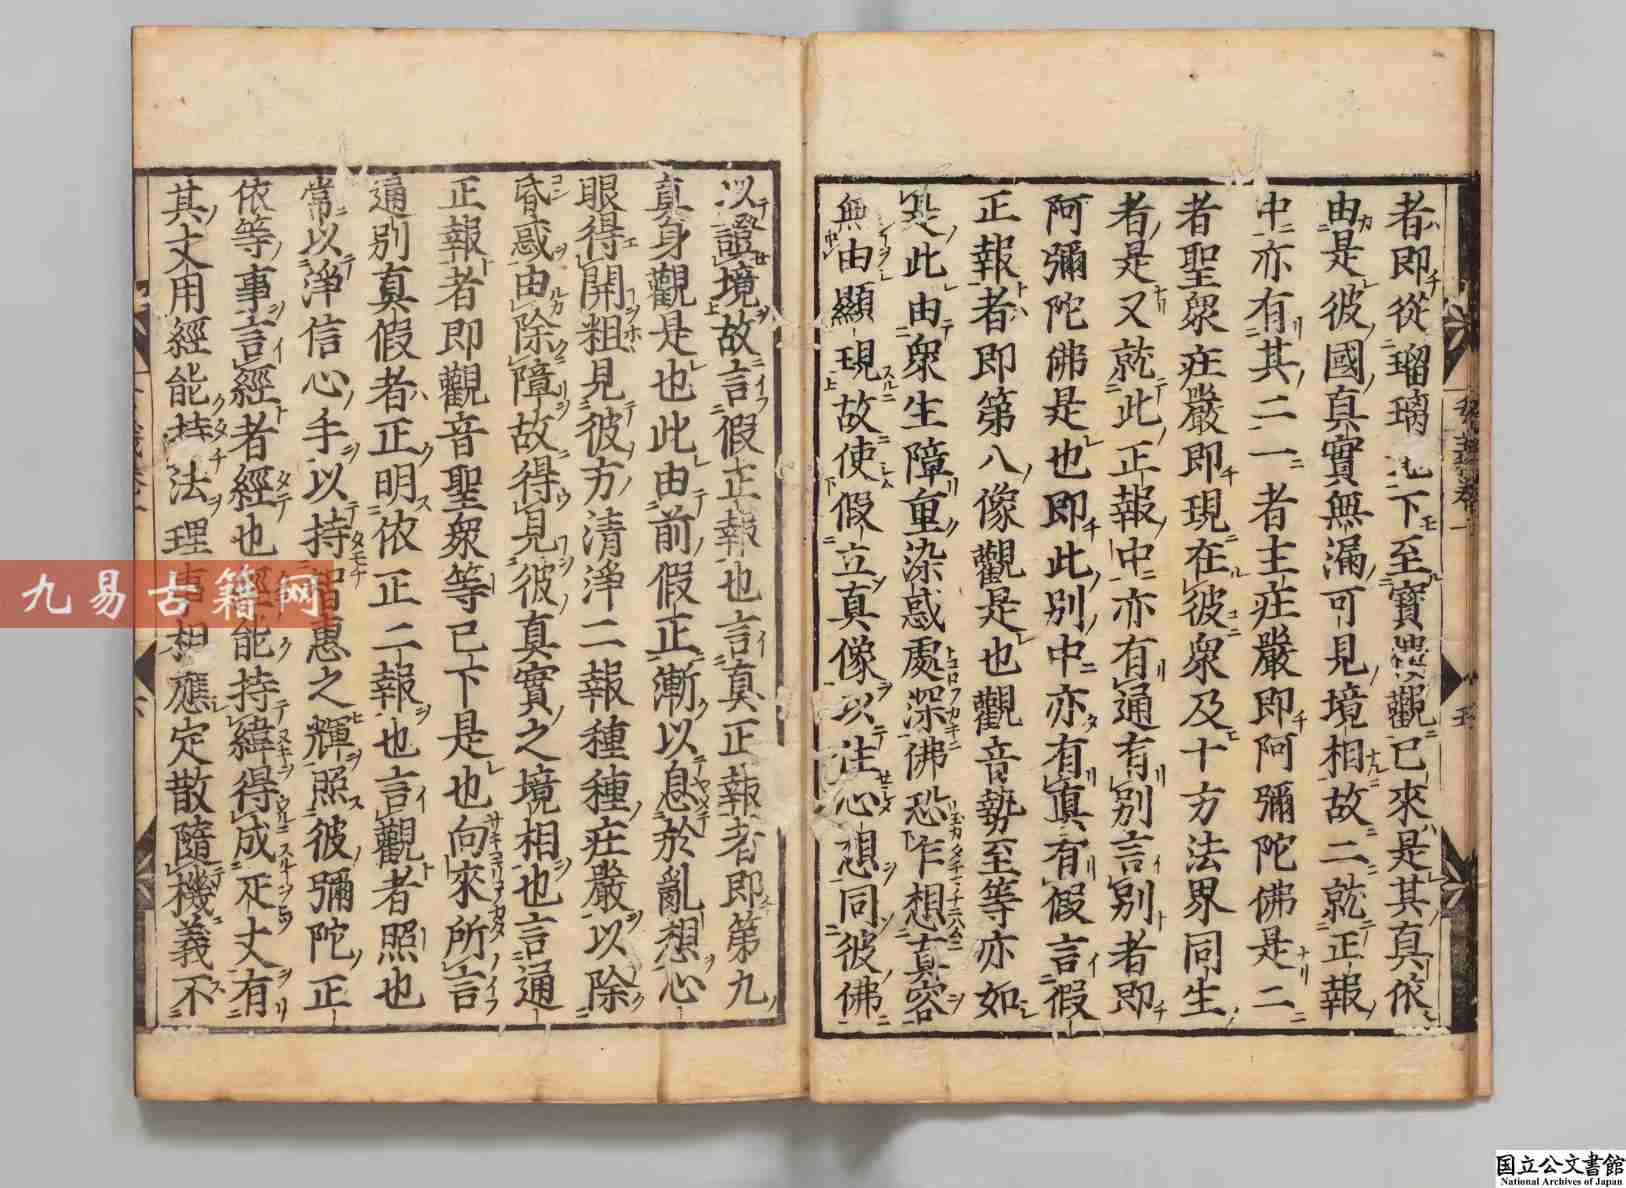 者即從瑠璃地下至寶樓觀已來是其真依
由是彼國真實無漏可見境相故二就正報
中亦有其二一者主莊嚴即阿彌陀佛是二
者聖衆莊嚴即現在彼衆及十方法界同生
者是又就此正報中亦有通有別言別者即
阿彌陀佛是也即此別中亦有真有假言假
正報者即第八像觀是也觀音勢至等亦如
是此由衆生障重染惑處深佛恐乍想真容
無由顯現故使假立真像以注心想同彼佛
以證境故言假正報也言真正報者即第九
真身觀是也此由前假正漸以息於亂想心
眼得開粗見彼方清淨二報種種莊嚴以除
昏惑由除障故得見彼真實之境相也言通
正報者即觀音聖衆等已下是也向來所言
通別真假者正明依正二報也言觀者照也
常以淨信心手以持智惠之輝照彼彌陀正
依等事言經者經也經能持緯得成疋丈有
其丈用經能持法理事相應定散隨機義不
九易古籍网
国立公文書館
National Archives of Japan